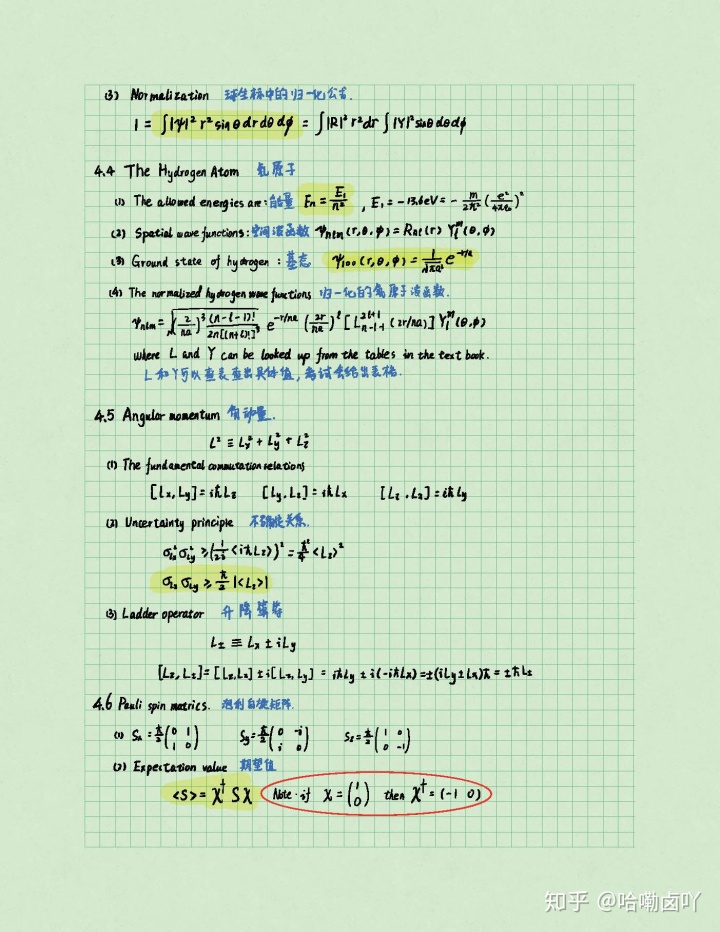 (3) Normalization 球坐标中的归一化公式.
1 = ∫|ψ|² r² sinθ dr dθ dϕ = ∫|R|² r² dr ∫|Y|² sinθ dθ dϕ
4.4 The Hydrogen Atom 氢原子
(1) The allowed energies are: 能量 Eₙ = E₁/n² , E₁ = -13.6eV = - m/2ħ² (e²/4πε₀)²
(2) Spatial wave functions: 空间波函数 ψnlm (r,θ,ϕ) = Rnl(r) Yₗᵐ(θ,ϕ)
(3) Ground state of hydrogen : 基态 ψ₁₀₀ (r,θ,ϕ) = 1/√πa³ e^(-r/a)
(4) The normalized hydrogen wave functions 归一化的氢原子波函数.
ψnlm = √((2/na)³ (n-l-1)!/2n[(n+l)!]³) e^(-r/na) (2r/na)^l [L^(2l+1)_(n-l-1) (2r/na)] Yₗᵐ(θ,ϕ)
where L and Y can be looked up from the tables in the text book.
L和Y可以查表查出具体值, 考试会给出表格.
4.5 Angular momentum 角动量.
L² ≡ Lx² + Ly² + Lz²
(1) The fundamental commutation relations
[Lx, Ly] = iħLz [Ly, Lz] = iħLx [Lz, Lx] = iħLy
(2) Uncertainty principle 不确定关系.
σLx² σLy² ≥ (1/2i <iħLz>)² = ħ²/4 <Lz>²
σLx σLy ≥ ħ/2 |<Lz>|
(3) Ladder operator 升降算符
L± ≡ Lx ± iLy
[Lz, L±] = [Lz, Lx] ± i[Lz, Ly] = iħLy ± i(-iħLx) = ±(iLy ± Lx)ħ = ±ħL±
4.6 Pauli spin matrics. 泡利自旋矩阵.
(1) Sx = ħ/2 (0 1; 1 0) Sy = ħ/2 (0 -i; i 0) Sz = ħ/2 (1 0; 0 -1)
(2) Expectation value 期望值
<S> = χ† S χ Note: if χ = (1; 0) then χ† = (-1 0)
知乎 @哈嘞卤吖